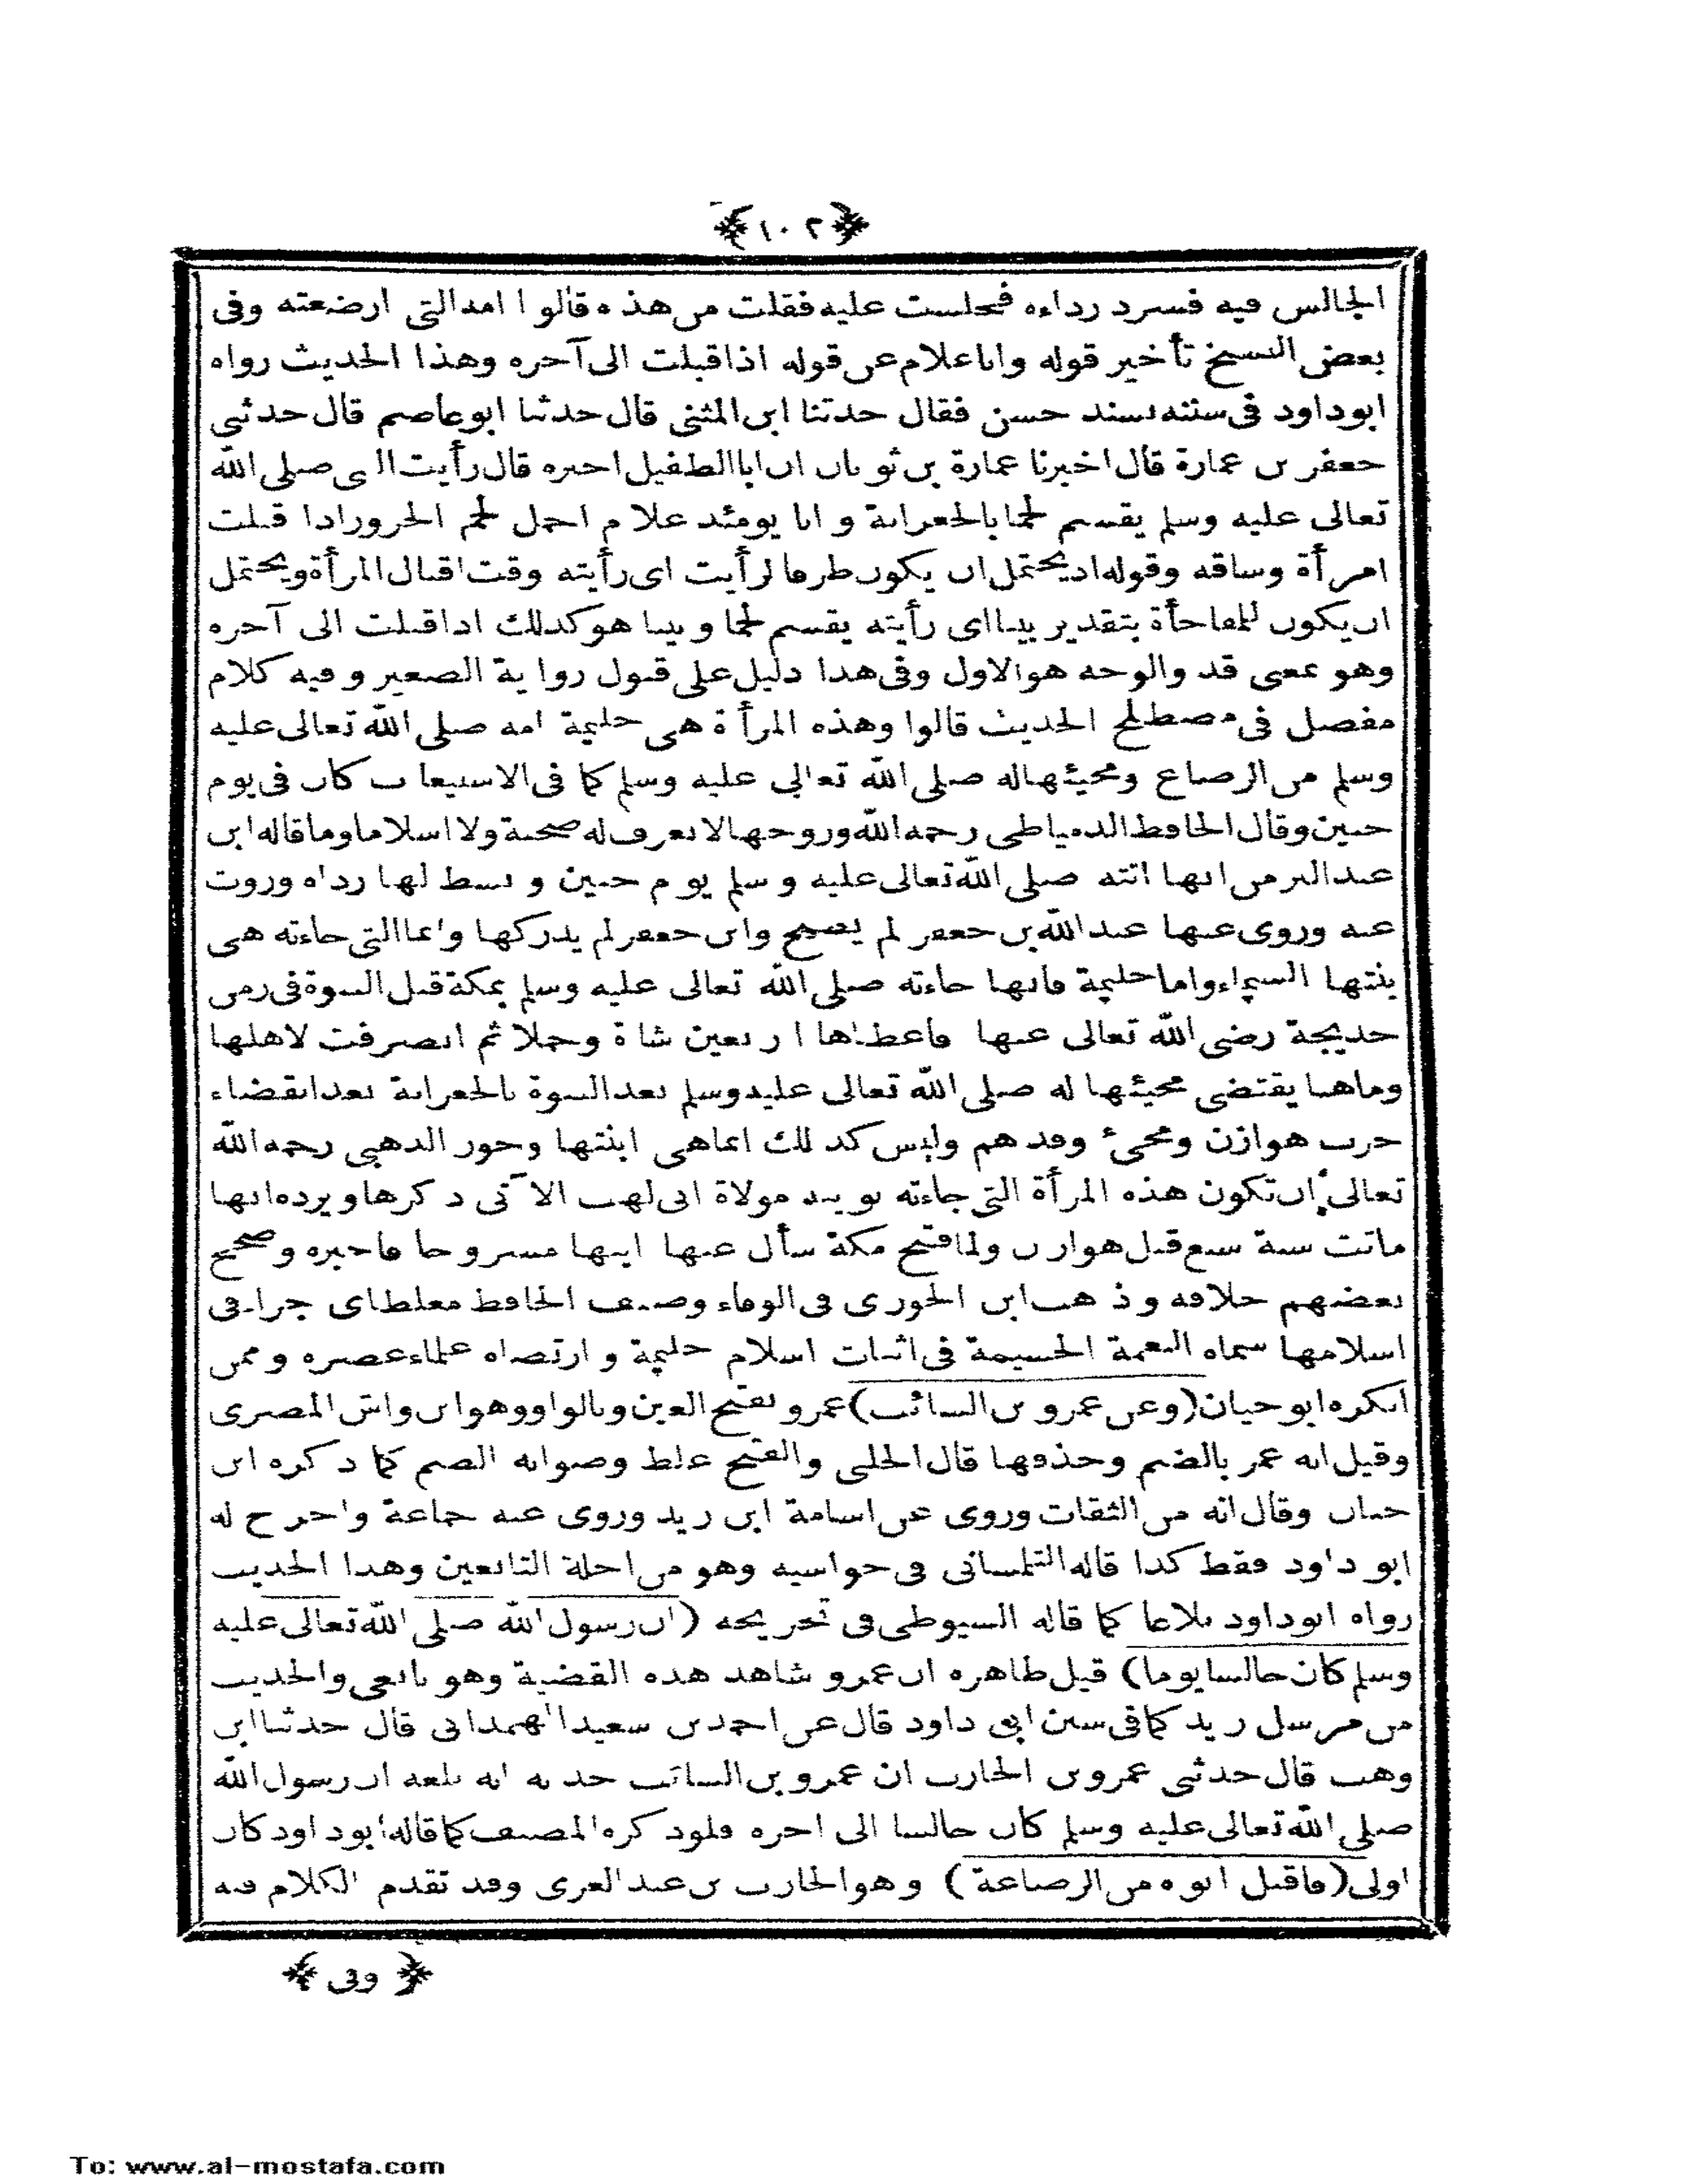 ﴿١٠٢﴾
الجالس فيه فسرد رداءه فجلست عليه فقلت من هذه قالوا امه التى ارضعته وفى
بعض النسخ تأخير قوله وانا غلام عن قوله اذ اقبلت الى آخره وهذا الحديث رواه
ابو داود فى سننه بسند حسن فقال حدثنا ابن المثنى قال حدثنا ابو عاصم قال حدثنى
جعفر بن عمارة قال اخبرنا عمارة بن ثوبان ان ابا الطفيل اخبره قال رأيت النبى صلى الله
تعالى عليه وسلم يقسم لحما بالجعرانة و انا يومئذ غلام احمل لحم الجزور اذا قبلت
امرأة وساقه وقوله اذ يحتمل ان يكون ظرفا لرأيت اى رأيته وقت اقبال المرأة ويحتمل
ان يكون للمفاجأة بتقدير بينا اى رأيته يقسم لحما و بينا هو كذلك اذ اقبلت الى آخره
وهو بمعنى قد والوجه هو الاول وفى هذا دليل على قبول رواية الصغير و فيه كلام
مفصل فى مصطلح الحديث قالوا وهذه المرأة هى حليمة امه صلى الله تعالى عليه
وسلم من الرضاع ومجيئها له صلى الله تعالى عليه وسلم كما فى الاستيعاب كان فى يوم
حنين وقال الحافظ الدمياطى رحمه الله وزوجها لا يعرف له صحبة ولا اسلاما وما قاله ابن
عبد البر من انها اتته صلى الله تعالى عليه و سلم يوم حنين و بسط لها رداه وروت
عنه وروى عنها عبد الله بن جعفر لم يصح وابن جعفر لم يدركها وانما التى جاءته هى
بنتها الشيماء واما حليمة فانها جاءته صلى الله تعالى عليه وسلم بمكة قبل النبوة فى زمن
خديجة رضى الله تعالى عنها فاعطاها اربعين شاة وجملا ثم انصرفت لاهلها
وما هنا يقتضى مجيئها له صلى الله تعالى عليه وسلم بعد النبوة بالجعرانة بعد انقضاء
حرب هوازن ومجئ وفدهم وليس كذلك انما هى ابنتها وجوز الذهبى رحمه الله
تعالى ان تكون هذه المرأة التى جاءته ثويبة مولاة ابى لهب الآتى ذكرها ويرده انها
ماتت سنة سبع قبل هوازن ولما فتح مكة سأل عنها ابنها مسروحا فاخبره وصحح
بعضهم خلافه و ذهب ابن الجوزى فى الوفاء وصنف الحافظ مغلطاى جزأ فى
اسلامها سماه النعمة الجسيمة فى اثبات اسلام حليمة و ارتضاه علماء عصره و ممن
انكره ابو حيان (وعن عمرو بن السائب) عمرو بفتح العين وبالواو وهو ابن واش المصرى
وقيل انه عمر بالضم وحذفها قال الحلبى والفتح غلط وصوابه الضم كما ذكره ابن
حبان وقال انه من الثقات وروى عن اسامة ابن زيد وروى عنه جماعة واخرج له
ابو داود فقط كذا قاله التلمسانى فى حواشيه وهو من اجلة التابعين وهذا الحديث
رواه ابو داود بلاغا كما قاله السيوطى فى تخريجه (ان رسول الله صلى الله تعالى عليه
وسلم كان جالسا يوما) قيل ظاهره ان عمرو شاهد هذه القضية وهو تابعى والحديث
من مرسل زيد كما فى سنن ابى داود قال عن احمد بن سعيد الهمدانى قال حدثنا ابن
وهب قال حدثنى عمرو بن الحارث ان عمرو بن السائب حدثه انه بلغه ان رسول الله
صلى الله تعالى عليه وسلم كان جالسا الى اخره فلو ذكره المصنف كما قاله ابو داود كان
اولى (فاقبل ابوه من الرضاعة) وهو الحارث بن عبد العزى وقد تقدم الكلام فيه
﴿ وفى ﴾
To: www.al-mostafa.com